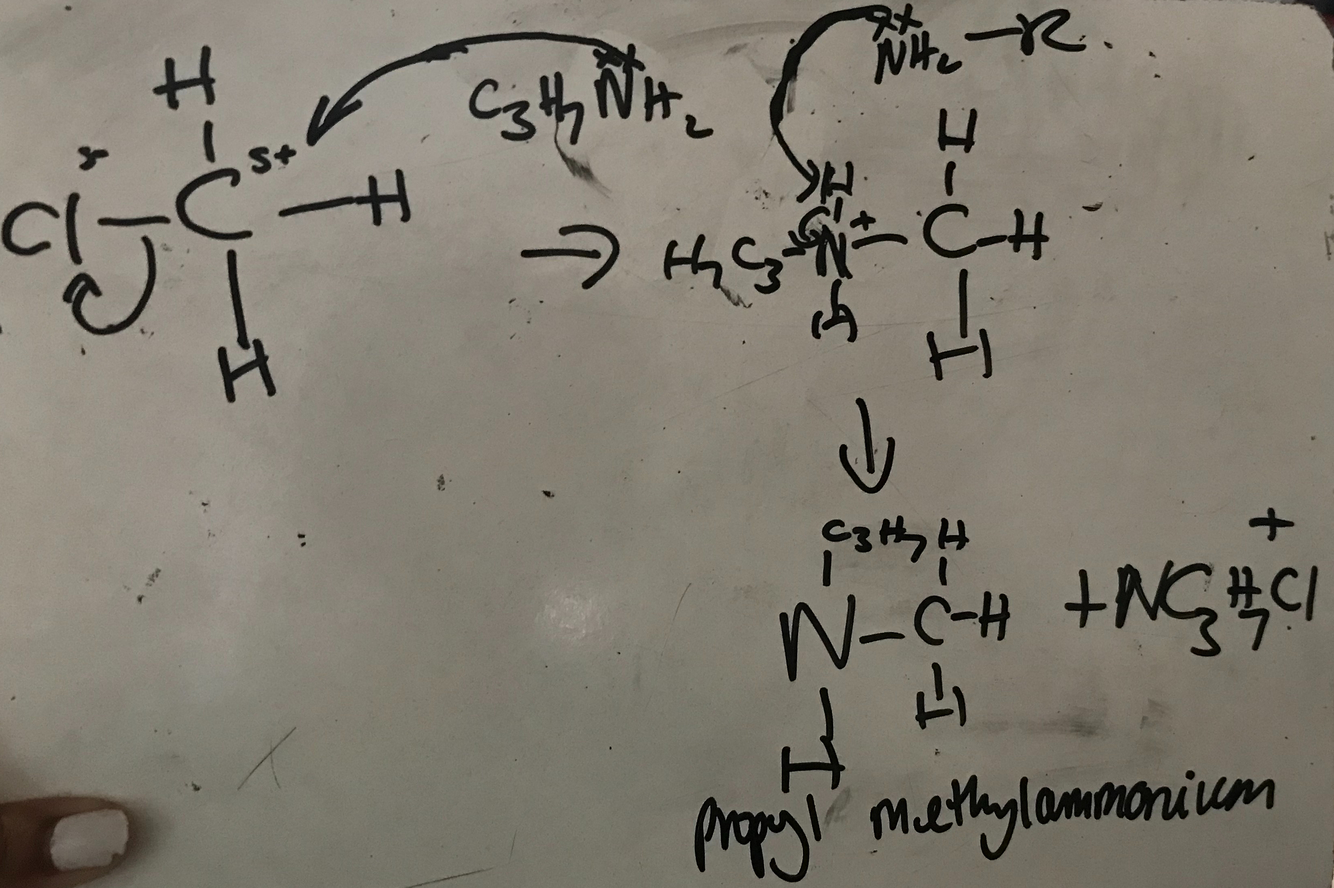 H
Cl — C — H
δ- δ+
H
C3H7NH2
→
NH2 — R
H H
H7C3 — N+ — C — H
H H
↓
C3H7 H
N — C — H + NC3H7Cl +
H H
propyl methylammonium